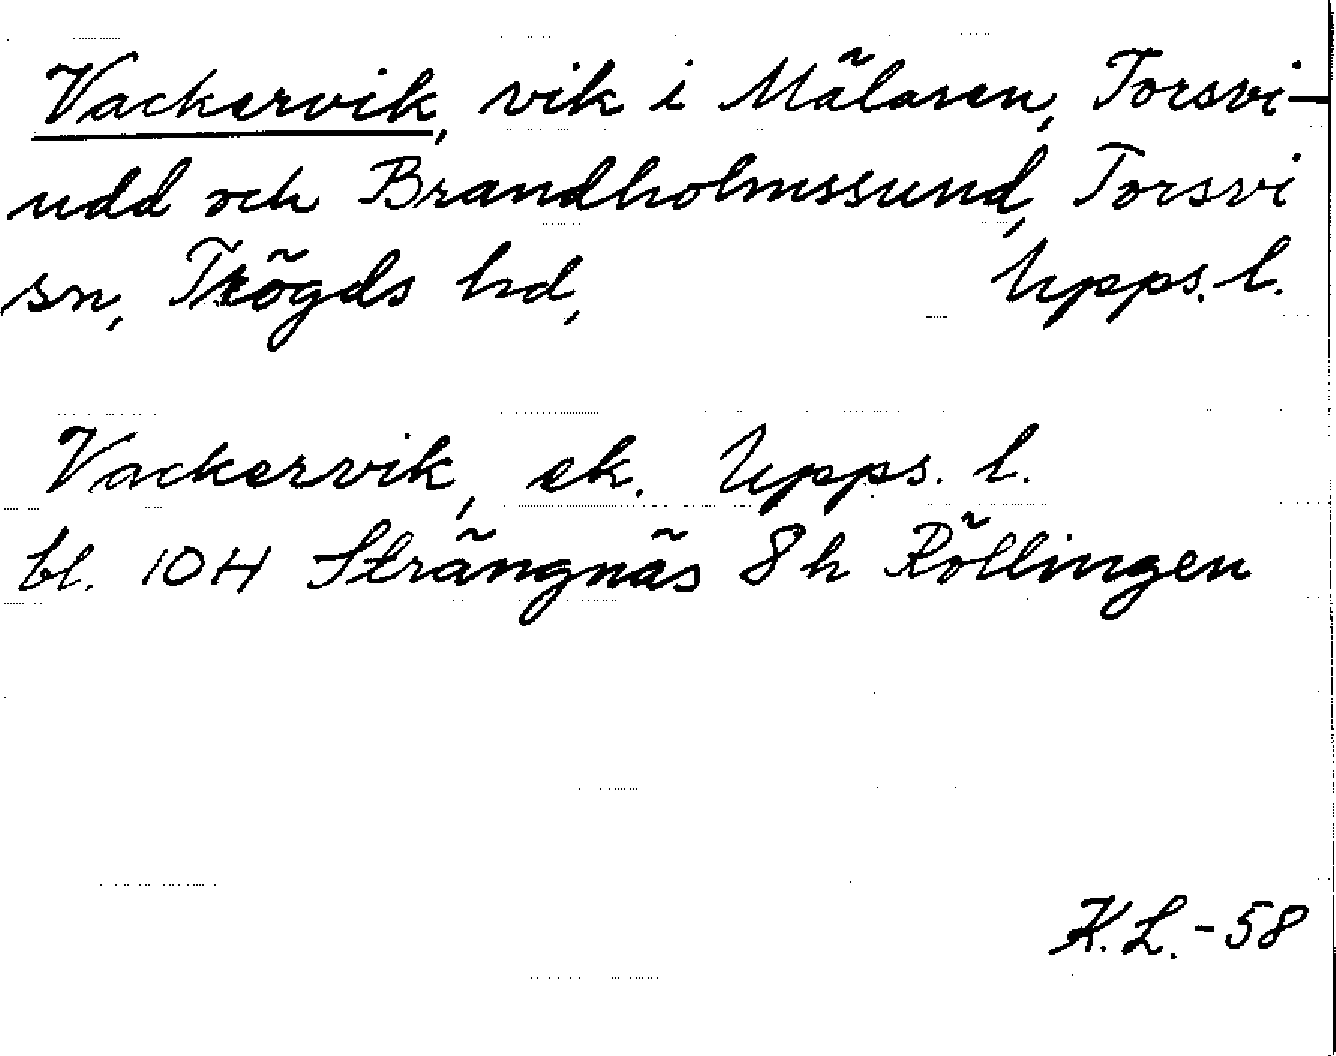 Vackervik, vik i Mälaren, Torsvi-
udd och Brandholmssund, Torsvi
sn, Trögds hd, Upps. l.
Vackervik, ek. Upps. l.
bl. 104 Strängnäs 8h Röllingen
K.L.-58